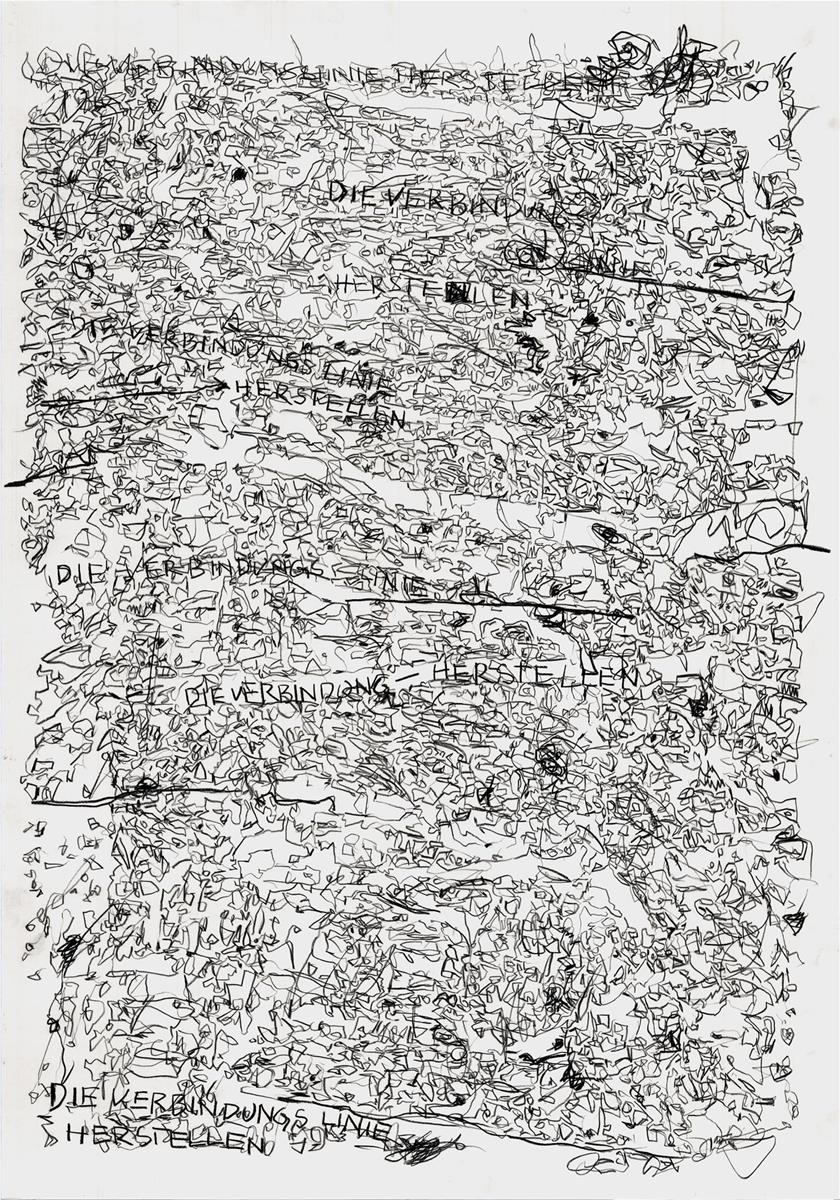 DIE VERBINDUNGSLINIE HERSTELLEN
DIE VERBINDUNGS
LINIE
HERSTELLEN
DIE VERBINDUNGS LINIE
HERSTELLEN
DIE VERBINDUNGS LINIE
DIE VERBINDUNG – HERSTELLEN
DIE VERBINDUNGS LINIE
HERSTELLEN